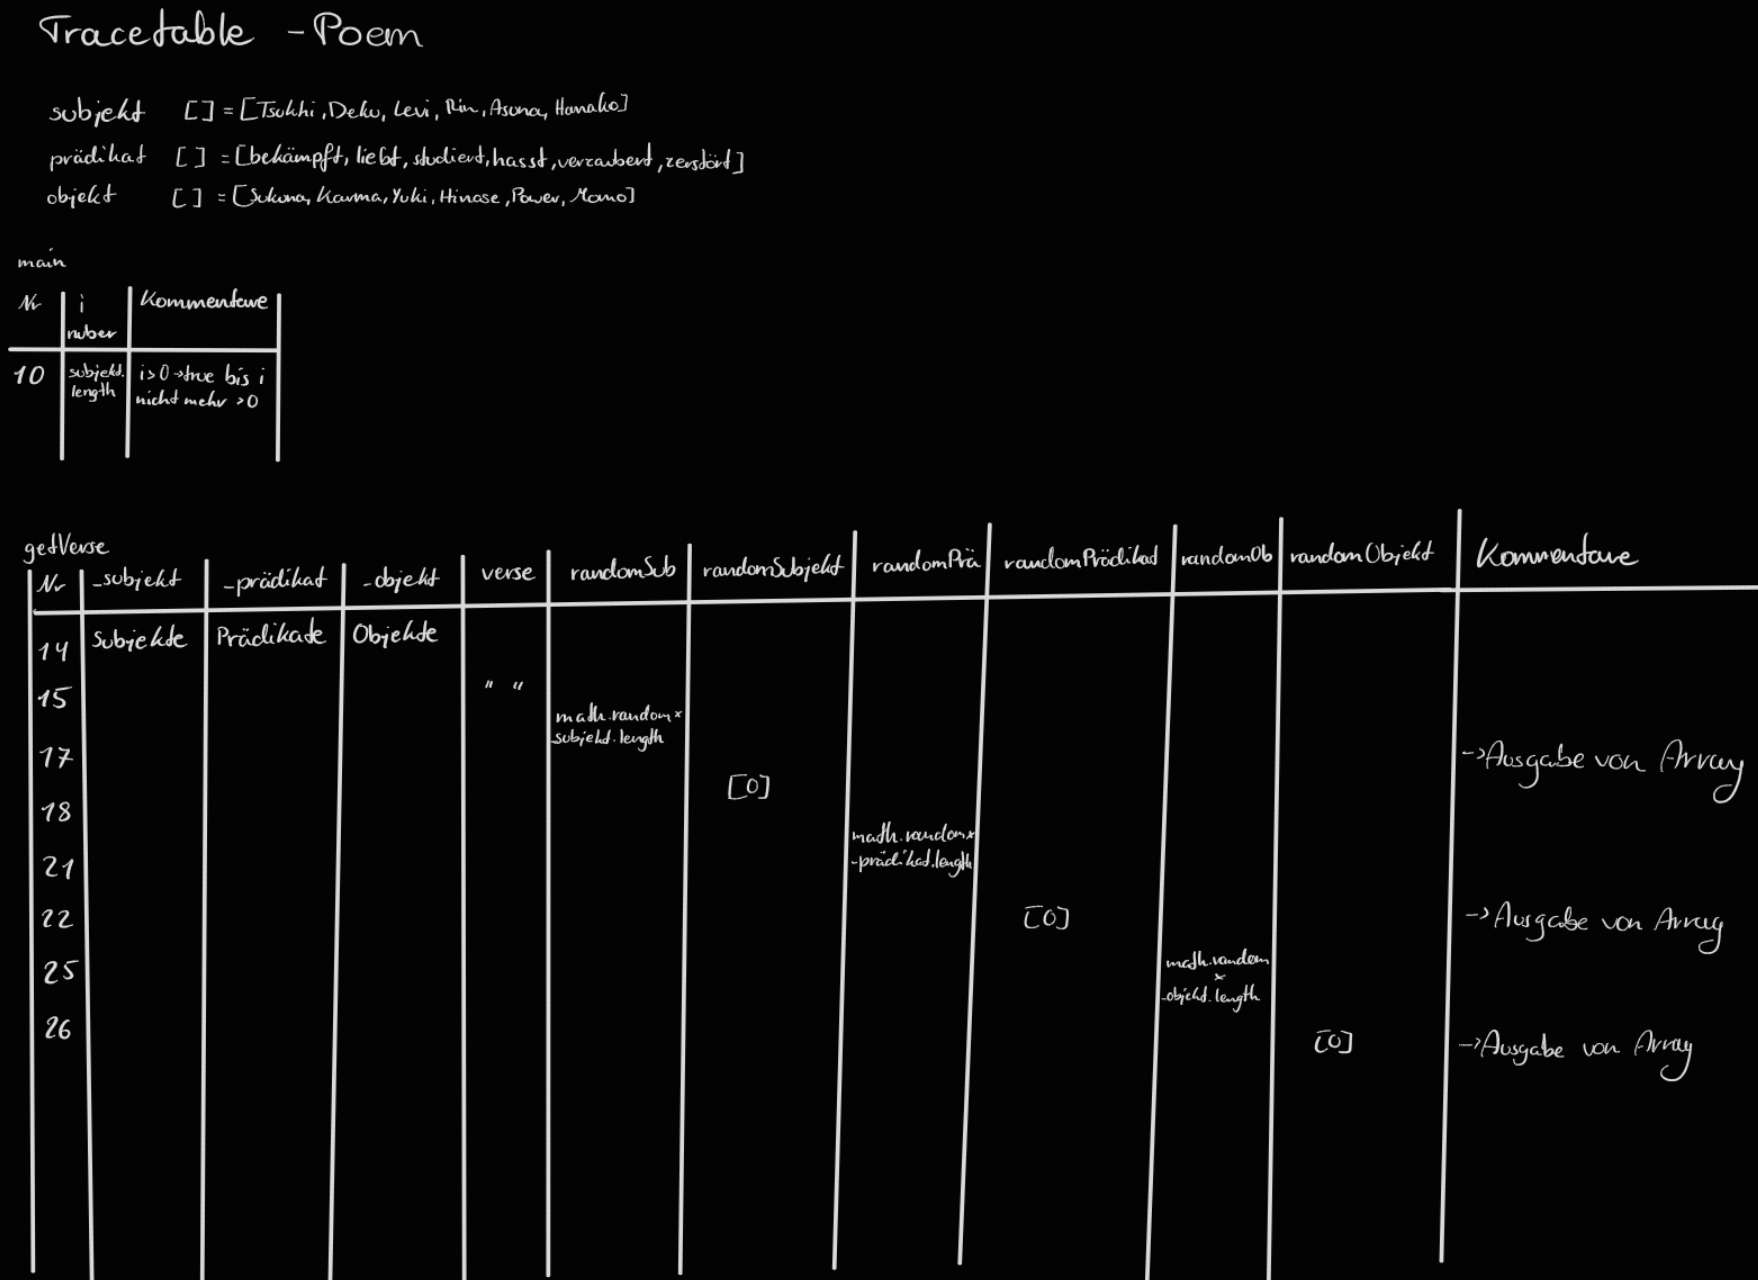 Tracetable - Poem
subjekt [] = [Tsukhi, Deku, Levi, Rin, Asuna, Hanako]
prädikat [] = [bekämpft, liebt, studiert, hasst, verzaubert, zerstört]
objekt [] = [Sukuna, Karma, Yuki, Hinase, Power, Momo]
main
Nr i Kommentare
nuber
10 subjekt. i>0→true bis i
length nicht mehr >0
getVerse
Nr _subjekt _prädikat _objekt verse randomSub randomSubjekt randomPrä randomPrädikat randomOb randomObjekt Kommentare
14 Subjekte Prädikate Objekte
15 " "
math.random×
_subjekt.length
17 ->Ausgabe von Array
[0]
18
math.random×
_prädikat.length
21
22 [0] ->Ausgabe von Array
25 math.random
×
_objekt.length
26 [0] ->Ausgabe von Array